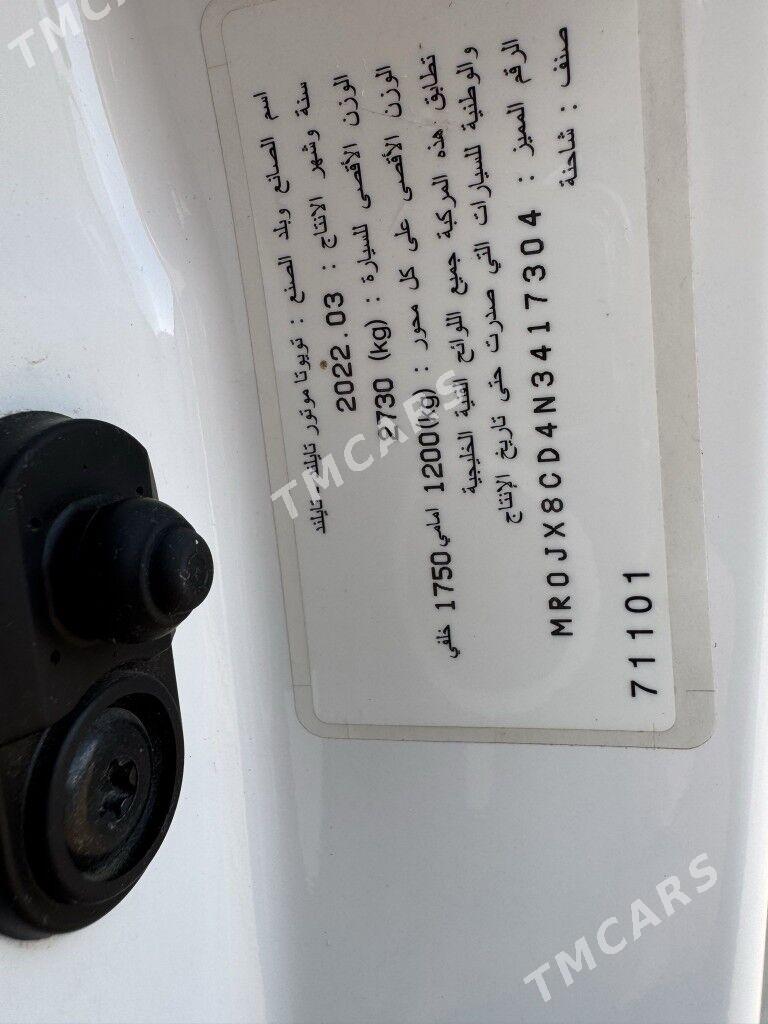 اسم الصانع وبلد الصنع : تويوتا موتور تايلند - تايلند
سنة وشهر الانتاج : 2022.03
الوزن الأقصى للسيارة : 2730 (kg)
الوزن الأقصى على كل محور : 1200(kg) امامي 1750 خلفي
تطابق هذه المركبة جميع اللوائح الفنية الخليجية
والوطنية للسيارات التي صدرت حتى تاريخ الإنتاج
الرقم المميز : MR0JX8CD4N3417304
صنف : شاحنة
71101
TMCARS
TMCARS
TMCARS